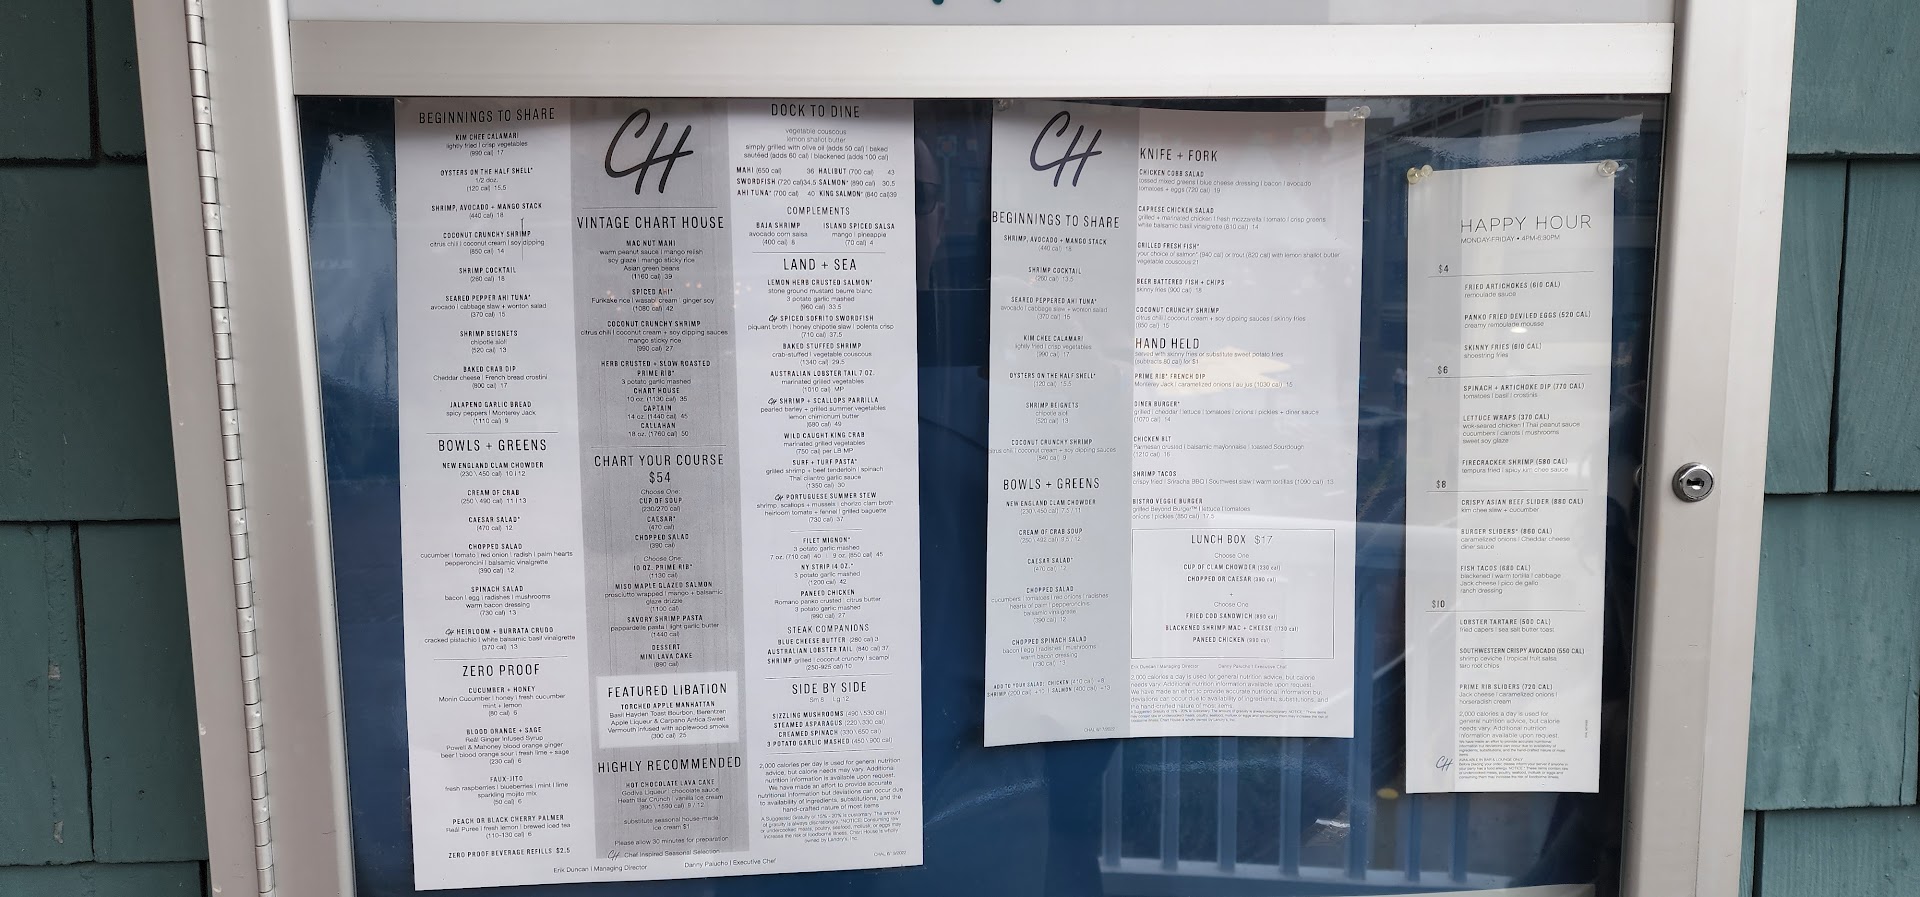 BEGINNINGS TO SHARE
KIM CHEE CALAMARI
lightly fried | crisp vegetables
(990 cal) 17
OYSTERS ON THE HALF SHELL*
1/2 doz.
(120 cal) 15.5
SHRIMP, AVOCADO + MANGO STACK
(440 cal) 18
COCONUT CRUNCHY SHRIMP
citrus chili | coconut cream | soy dipping
(850 cal) 14
SHRIMP COCKTAIL
(260 cal) 18
SEARED PEPPER AHI TUNA*
avocado | cabbage slaw + wonton salad
(370 cal) 15
SHRIMP BEIGNETS
chipotle aioli
(520 cal) 13
BAKED CRAB DIP
Cheddar cheese | French bread crostini
(800 cal) 17
JALAPENO GARLIC BREAD
spicy peppers | Monterey Jack
(1110 cal) 9
BOWLS + GREENS
NEW ENGLAND CLAM CHOWDER
(230 \ 450 cal) 10 | 12
CREAM OF CRAB
(250 \ 490 cal) 11 | 13
CAESAR SALAD*
(470 cal) 12
CHOPPED SALAD
cucumber | tomato | red onion | radish | palm hearts
pepperoncini | balsamic vinaigrette
(390 cal) 12
SPINACH SALAD
bacon | egg | radishes | mushrooms
warm bacon dressing
(730 cal) 13
CH HEIRLOOM + BURRATA CRUDO
cracked pistachio | white balsamic basil vinaigrette
(370 cal) 13
ZERO PROOF
CUCUMBER + HONEY
Monin Cucumber | honey | fresh cucumber
mint + lemon
(80 cal) 6
BLOOD ORANGE + SAGE
Reàl Ginger Infused Syrup
Powell & Mahoney blood orange ginger
beer | blood orange sour | fresh lime + sage
(230 cal) 6
FAUX-JITO
fresh raspberries | blueberries | mint | lime
sparkling mojito mix
(50 cal) 6
PEACH OR BLACK CHERRY PALMER
Reàl Purée | fresh lemon | brewed iced tea
(110-130 cal) 6
ZERO PROOF BEVERAGE REFILLS $2.5
CH
VINTAGE CHART HOUSE
MAC NUT MAHI
warm peanut sauce | mango relish
soy glaze | mango sticky rice
Asian green beans
(1160 cal) 39
SPICED AHI*
Furikake rice | wasabi cream | ginger soy
(1080 cal) 42
COCONUT CRUNCHY SHRIMP
citrus chili | coconut cream + soy dipping sauces
mango sticky rice
(990 cal) 27
HERB CRUSTED + SLOW ROASTED
PRIME RIB*
3 potato garlic mashed
CHART HOUSE
10 oz. (1130 cal) 35
CAPTAIN
14 oz. (1440 cal) 45
CALLAHAN
18 oz. (1760 cal) 50
CHART YOUR COURSE
$54
Choose One:
CUP OF SOUP
(230/270 cal)
CAESAR*
(470 cal)
CHOPPED SALAD
(390 cal)
Choose One:
10 OZ. PRIME RIB*
(1130 cal)
MISO MAPLE GLAZED SALMON
prosciutto wrapped | mango + balsamic
glaze drizzle
(1100 cal)
SAVORY SHRIMP PASTA
pappardelle pasta | light garlic butter
(1440 cal)
DESSERT
MINI LAVA CAKE
(890 cal)
FEATURED LIBATION
TORCHED APPLE MANHATTAN
Basil Hayden Toast Bourbon, Berentzen
Apple Liqueur & Carpano Antica Sweet
Vermouth infused with applewood smoke
(300 cal) 25
HIGHLY RECOMMENDED
HOT CHOCOLATE LAVA CAKE
Godiva Liqueur | chocolate sauce
Heath Bar Crunch | vanilla ice cream
(890 \ 1590 cal) 9 / 12
substitute seasonal house-made
ice cream $1
Please allow 30 minutes for preparation
CH Chef Inspired Seasonal Selection
Erik Duncan | Managing Director
Danny Palucho | Executive Chef
DOCK TO DINE
vegetable couscous
lemon shallot butter
simply grilled with olive oil (adds 50 cal) | baked
sautéed (adds 60 cal) | blackened (adds 100 cal)
MAHI (650 cal) 36 HALIBUT (700 cal) 43
SWORDFISH (720 cal) 34.5 SALMON* (890 cal) 30.5
AHI TUNA* (700 cal) 40 KING SALMON* (840 cal) 39
COMPLEMENTS
BAJA SHRIMP
avocado corn salsa
(400 cal) 8
ISLAND SPICED SALSA
mango | pineapple
(70 cal) 4
LAND + SEA
LEMON HERB CRUSTED SALMON*
stone ground mustard beurre blanc
3 potato garlic mashed
(960 cal) 33.5
CH SPICED SOFRITO SWORDFISH
piquant broth | honey chipotle slaw | polenta crisp
(710 cal) 37.5
BAKED STUFFED SHRIMP
crab-stuffed | vegetable couscous
(1340 cal) 29.5
AUSTRALIAN LOBSTER TAIL 7 OZ.
marinated grilled vegetables
(1010 cal) MP
CH SHRIMP + SCALLOPS PARRILLA
pearled barley + grilled summer vegetables
lemon chimichurri butter
(680 cal) 49
WILD CAUGHT KING CRAB
marinated grilled vegetables
(750 cal) per LB MP
SURF + TURF PASTA*
grilled shrimp + beef tenderloin | spinach
Thai cilantro garlic sauce
(1350 cal) 30
CH PORTUGUESE SUMMER STEW
shrimp, scallops + mussels | chorizo clam broth
heirloom tomato + fennel | grilled baguette
(730 cal) 37
FILET MIGNON*
3 potato garlic mashed
7 oz. (710 cal) 40 | 9 oz. (850 cal) 45
NY STRIP 14 OZ.*
3 potato garlic mashed
(1200 cal) 42
PANEED CHICKEN
Romano panko crusted | citrus butter
3 potato garlic mashed
(990 cal) 27
STEAK COMPANIONS
BLUE CHEESE BUTTER (280 cal) 3
AUSTRALIAN LOBSTER TAIL (840 cal) 37
SHRIMP grilled | coconut crunchy | scampi
(250-925 cal) 10
SIDE BY SIDE
Sm 8 Lg 12
SIZZLING MUSHROOMS (490 \ 530 cal)
STEAMED ASPARAGUS (220 \ 330 cal)
CREAMED SPINACH (330 \ 650 cal)
3 POTATO GARLIC MASHED (450 \ 900 cal)
2,000 calories per day is used for general nutrition
advice, but calorie needs may vary. Additional
nutrition information is available upon request.
We have made an effort to provide accurate
nutritional information but deviations can occur due
to availability of ingredients, substitutions, and the
hand-crafted nature of most items
CH
BEGINNINGS TO SHARE
SHRIMP, AVOCADO + MANGO STACK
(440 cal) 18
SHRIMP COCKTAIL
(260 cal) 13.5
SEARED PEPPERED AHI TUNA*
avocado | cabbage slaw + wonton salad
(370 cal) 15
KIM CHEE CALAMARI
lightly fried | crisp vegetables
(990 cal) 17
OYSTERS ON THE HALF SHELL*
(120 cal) 15.5
SHRIMP BEIGNETS
chipotle aioli
(520 cal) 13
COCONUT CRUNCHY SHRIMP
citrus chili | coconut cream + soy dipping sauces
(840 cal) 9
BOWLS + GREENS
NEW ENGLAND CLAM CHOWDER
(230 \ 450 cal) 7.5 / 11
CREAM OF CRAB SOUP
CAESAR SALAD*
(470 cal) 12
CHOPPED SALAD
cucumbers | tomatoes | red onions | radishes
hearts of palm | pepperoncinis
balsamic vinaigrette
(390 cal) 12
CHOPPED SPINACH SALAD
bacon | egg | radishes | mushrooms
warm bacon dressing
(730 cal) 13
ADD TO YOUR SALAD: CHICKEN (410 cal) +8
SHRIMP (200 cal) +10 | SALMON (400 cal) +13
KNIFE + FORK
CHICKEN COBB SALAD
tossed mixed greens | blue cheese dressing | bacon | avocado
tomatoes + eggs (720 cal) 19
CAPRESE CHICKEN SALAD
grilled + marinated chicken | fresh mozzarella | tomato | crisp greens
white balsamic basil vinaigrette (810 cal) 14
GRILLED FRESH FISH*
your choice of salmon* (940 cal) or trout (820 cal) with lemon shallot butter
vegetable couscous 21
BEER BATTERED FISH + CHIPS
skinny fries (900 cal) 18
COCONUT CRUNCHY SHRIMP
citrus chili | coconut cream + soy dipping sauces | skinny fries
(850 cal) 15
HAND HELD
served with skinny fries or substitute sweet potato fries
(subtracts 80 cal) for $1
PRIME RIB* FRENCH DIP
Monterey Jack | caramelized onions | au jus (1030 cal) 15
DINER BURGER*
grilled | cheddar | lettuce | tomatoes | onions | pickles + diner sauce
(1070 cal) 14
CHICKEN BLT
Parmesan crusted | balsamic mayonnaise | toasted Sourdough
(1210 cal) 16
SHRIMP TACOS
crispy fried | Sriracha BBQ | Southwest slaw | warm tortillas (1090 cal) 13
BISTRO VEGGIE BURGER
grilled Beyond Burger™ | lettuce | tomatoes
onions | pickles (850 cal) 17.5
LUNCH BOX $17
Choose One
CUP OF CLAM CHOWDER (230 cal)
CHOPPED OR CAESAR (390 cal)
+
Choose One
FRIED COD SANDWICH (890 cal)
BLACKENED SHRIMP MAC + CHEESE (1730 cal)
PANEED CHICKEN (990 cal)
Erik Duncan | Managing Director Danny Palucho | Executive Chef
2,000 calories a day is used for general nutrition advice, but calorie
needs vary. Additional nutrition information available upon request.
We have made an effort to provide accurate nutritional information but
deviations can occur due to availability of ingredients, substitutions, and
the hand-crafted nature of most items
HAPPY HOUR
MONDAY-FRIDAY • 4PM-6:30PM
$4
FRIED ARTICHOKES (610 CAL)
remoulade sauce
PANKO FRIED DEVILED EGGS (520 CAL)
creamy remoulade mousse
SKINNY FRIES (610 CAL)
shoestring fries
$6
SPINACH + ARTICHOKE DIP (770 CAL)
tomatoes | basil | crostinis
LETTUCE WRAPS (370 CAL)
wok-seared chicken | Thai peanut sauce
cucumbers | carrots | mushrooms
sweet soy glaze
FIRECRACKER SHRIMP (580 CAL)
tempura fried | spicy kim chee sauce
$8
CRISPY ASIAN BEEF SLIDER (880 CAL)
kim chee slaw + cucumber
BURGER SLIDERS* (860 CAL)
caramelized onions | Cheddar cheese
diner sauce
FISH TACOS (680 CAL)
blackened | warm tortilla | cabbage
Jack cheese | pico de gallo
ranch dressing
$10
LOBSTER TARTARE (500 CAL)
fried capers | sea salt butter toast
SOUTHWESTERN CRISPY AVOCADO (550 CAL)
shrimp ceviche | tropical fruit salsa
taro root chips
PRIME RIB SLIDERS (720 CAL)
Jack cheese | caramelized onions |
horseradish cream
2,000 calories a day is used for
general nutrition advice, but calorie
needs vary. Additional nutrition
information available upon request.
CH AVAILABLE IN BAR & LOUNGE ONLY